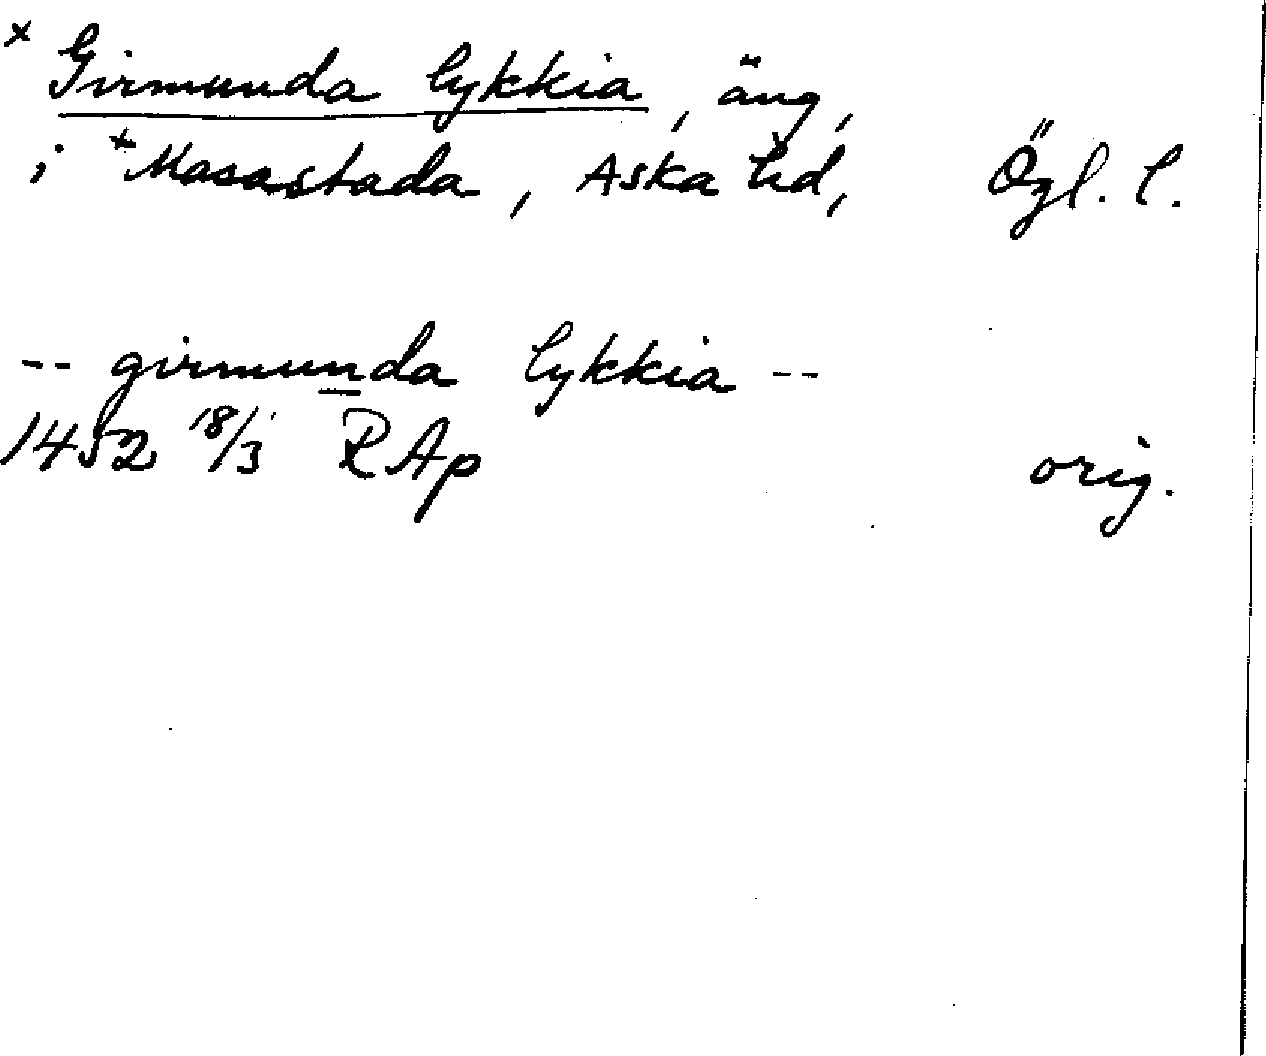 × Girmunda lykkia, äng,
i ×Masastada, Aska hd, Ögl. l.
-- girmunda lykkia --
1452 18/3 RAp orig.